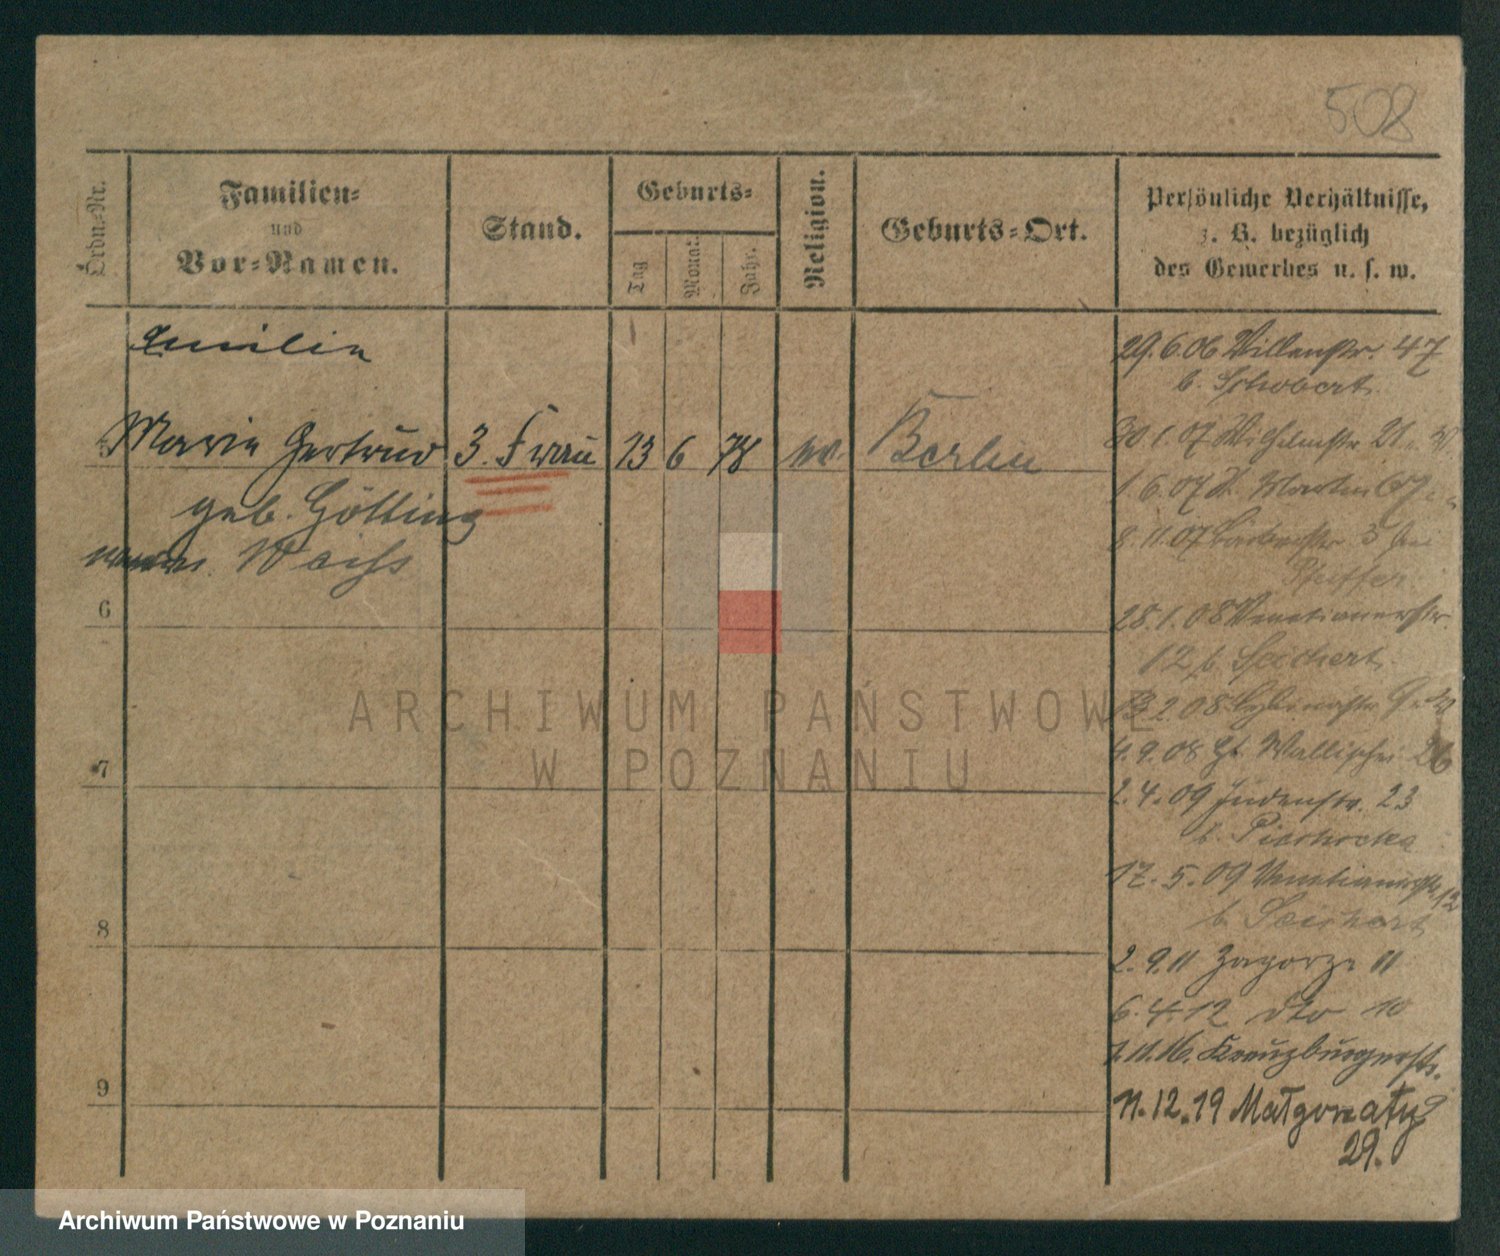 508
Ordn.-Nr.
Familien-
und
Vor-Namen.
Stand.
Geburts-
Tag
Monat.
Jahr.
Religion.
Geburts-Ort.
Persönliche Verhältnisse,
z. B. bezüglich
des Gewerbes u. s. w.
Emilie
5 Marie Gertrud 3. Frau 13 6 78 ev. Berlin
geb. Götting
Waihs
6
7
8
9
29.6.06 47
b. Schobert.
30.1.07 Wilhelmstr. 21
1.6.07 St. Martin 67
8.11.07 3 bei
Pfeiffer
28.1.08 Venetianerstr.
12 b. Seichert.
13.2.08 9
4.9.08 Wallischei 26
2.4.09 Judenstr. 23
b.
17.5.09 Venetianerstr. 12
b. Seichert
2.9.11 Zagorze 11
6.4.12 dto 10
1.11.16. Kreuzburgerstr.
11.12.19 Małgorzaty
29.
ARCHIWUM PAŃSTWOWE
W POZNANIU
Archiwum Państwowe w Poznaniu